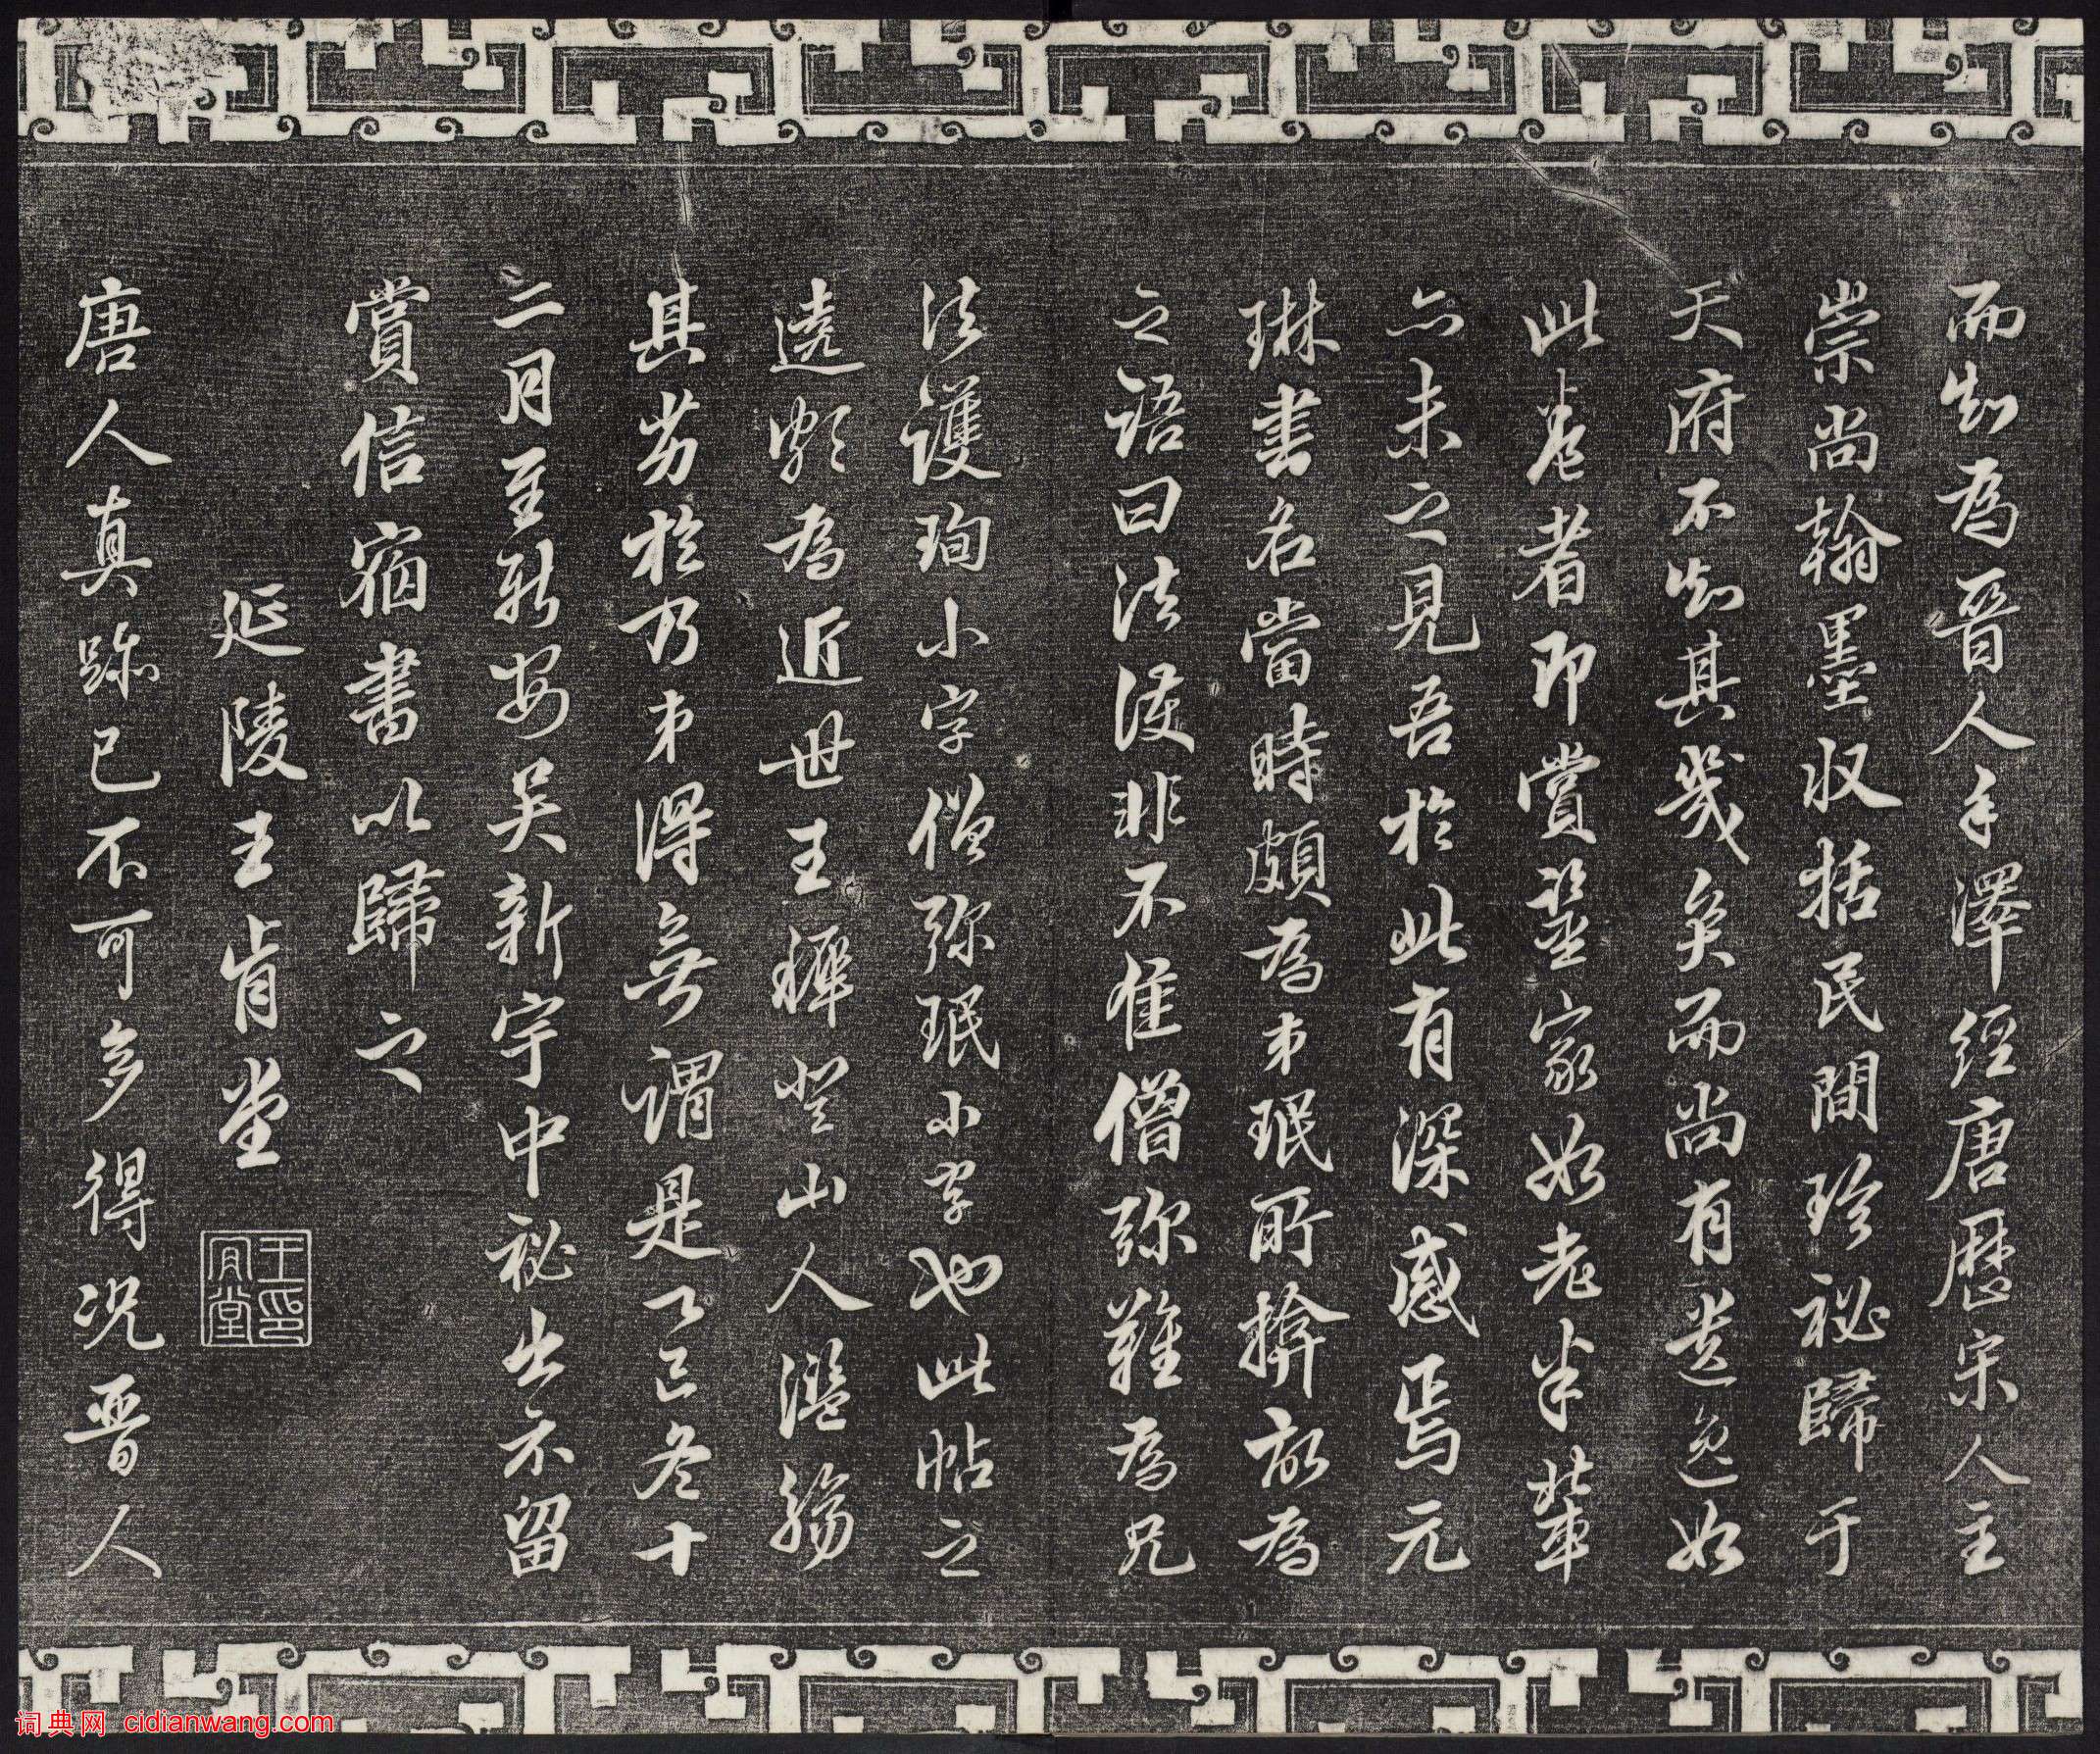 而知為晉人手澤經唐歷宋人主
崇尚翰墨收括民間珍祕歸于
天府不知其幾矣而尚有遺逸如
此卷者即賞鑒家如老米輩
亦未之見吾於此有深感焉元
琳書名當時頗為弟珉所揜故為
之語曰法護非不佳僧彌難為兄
法護珣小字僧彌珉小字也此帖之
遒媚為近世王穉登山人濫觴
其劣於乃弟得無謂是乙巳冬十
二月至新安吳新宇中祕出不留
賞信宿書以歸之
延陵王肯堂
王肯堂印
唐人真跡已不可多得況晉人
词典网 cidianwang.com